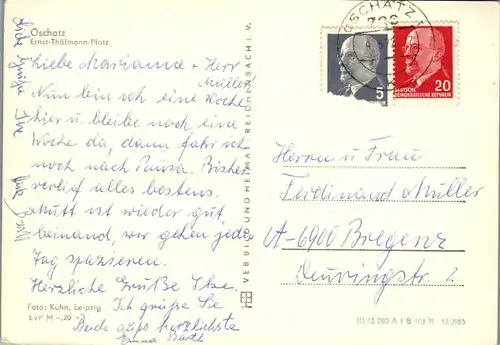 Oschatz
Ernst-Thälmann-Platz
Liebe Marianne + Herr
Müller!
Nun bin ich eine Woche
hier u. bleibe noch eine
Woche da, dann fahr ich
noch nach Pausa. Bisher
verlief alles bestens.
Mutti ist wieder gut
beinand, wir gehen jeden
Tag spazieren.
Herzliche Grüße Ilse.
Ich grüße Sie
Beide aufs herzlichste
Emma
Foto: Kühn, Leipzig
EVP M -,20
Liebe Grüße Ihre
VEB BILD UND HEIMAT REICHENBACH I. V.
OSCHATZ
5
DEUTSCHE
DEMOKRATISCHE REPUBLIK
20
Herrn u. Frau
Ferdinand Müller
A-6900 Bregenz
Deuringstr. 2